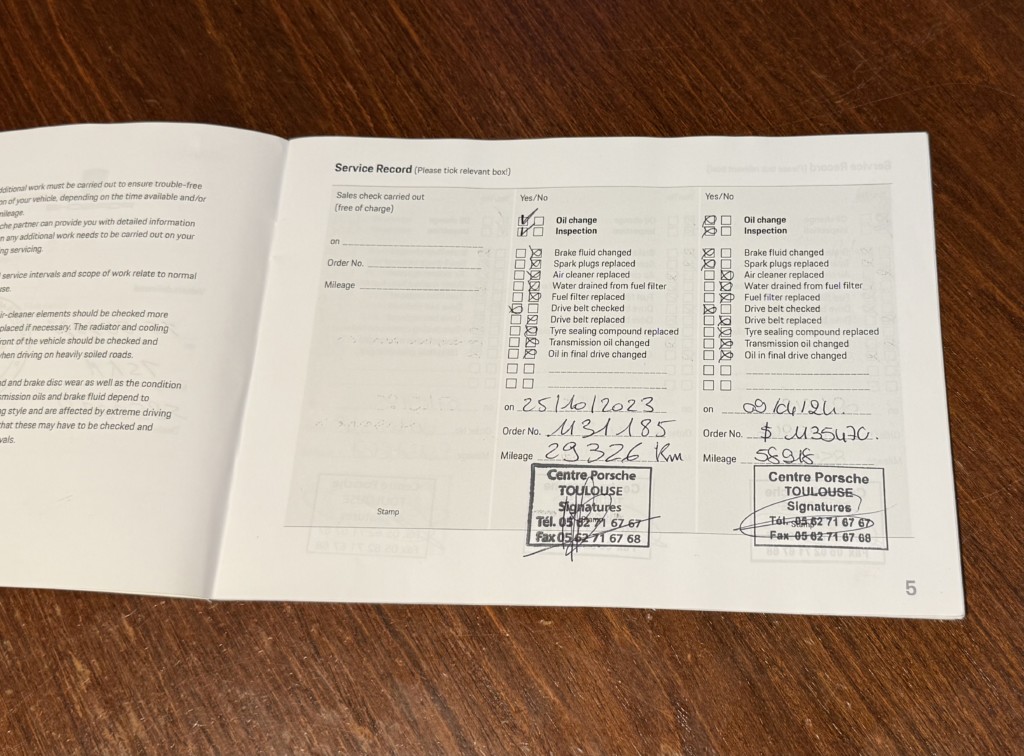 dditional work must be carried out to ensure trouble-free
on of your vehicle, depending on the time available and/or
mileage.
che partner can provide you with detailed information
n any additional work needs to be carried out on your
ng servicing.
service intervals and scope of work relate to normal
use.
ir-cleaner elements should be checked more
placed if necessary. The radiator and cooling
ront of the vehicle should be checked and
when driving on heavily soiled roads.
d and brake disc wear as well as the condition
smission oils and brake fluid depend to
g style and are affected by extreme driving
that these may have to be checked and
vals.
Service Record (Please tick relevant box!)
Sales check carried out
(free of charge)
on
Order No.
Mileage
Stamp
Yes/No
Oil change
Inspection
Brake fluid changed
Spark plugs replaced
Air cleaner replaced
Water drained from fuel filter
Fuel filter replaced
Drive belt checked
Drive belt replaced
Tyre sealing compound replaced
Transmission oil changed
Oil in final drive changed
on 25/10/2023
Order No. 1131185
Mileage 29326 Km
Centre Porsche
TOULOUSE
Signatures
Tél. 05 62 71 67 67
Fax 05 62 71 67 68
Yes/No
Oil change
Inspection
Brake fluid changed
Spark plugs replaced
Air cleaner replaced
Water drained from fuel filter
Fuel filter replaced
Drive belt checked
Drive belt replaced
Tyre sealing compound replaced
Transmission oil changed
Oil in final drive changed
on
Order No.
Mileage
Centre Porsche
TOULOUSE
Signatures
Tél. 05 62 71 67 67
Fax 05 62 71 67 68
5